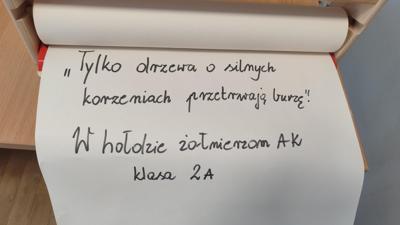 „Tylko drzewa o silnych
korzeniach przetrwają burzę"!
W hołdzie żołnierzom AK
klasa 2A